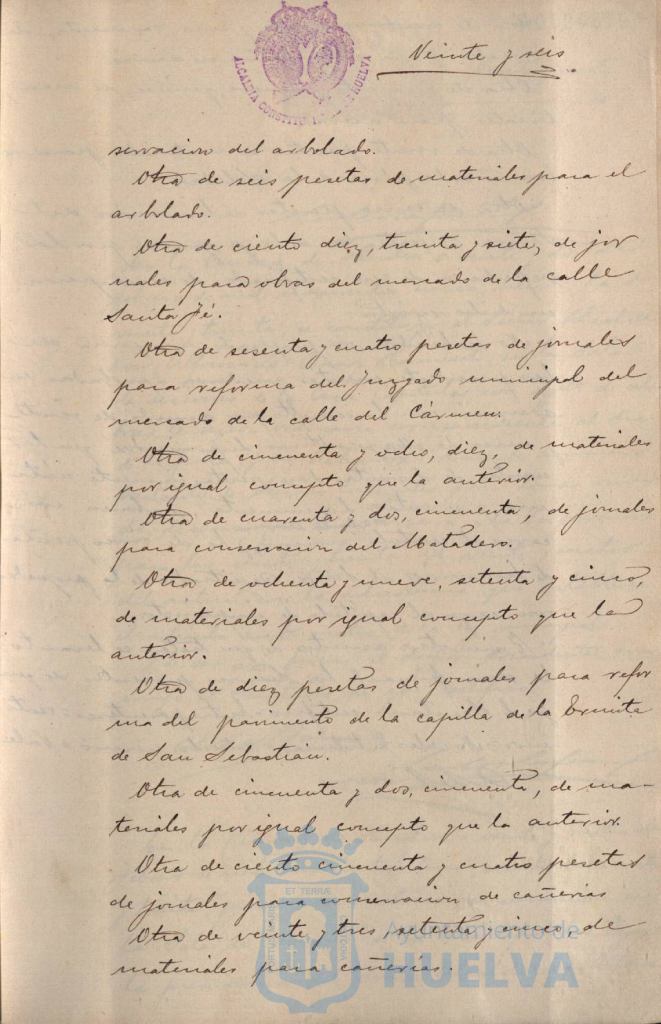 ALCALDIA CONSTITU HUELVA
Veinte y seis
servacion del arbolado.
Otra de seis pesetas de materiales para el
arbolado.
Otra de ciento diez, treinta y siete, de jor
nales para obras del mercado de la calle
Santa Fé.
Otra de sesenta y cuatro pesetas de jornales
para reforma del Juzgado municipal del
mercado de la calle del Cármen.
Otra de cincuenta y ocho, diez, de materiales
por igual concepto que la anterior.
Otra de cuarenta y dos, cincuenta, de jornales
para conservacion del Matadero.
Otra de ochenta y nueve, setenta y cinco,
de materiales por igual concepto que la
anterior.
Otra de diez pesetas de jornales para refor
ma del pavimento de la capilla de la Ermita
de San Sebastián.
Otra de cincuenta y dos, cincuenta, de ma-
teriales por igual concepto que la anterior.
Otra de ciento cincuenta y cuatro pesetas
de jornales para conservacion de cañerias
Otra de veinte y tres, setenta y cinco, de
materiales para cañerias.
ET TERRÆ
Ayuntamiento de
HUELVA